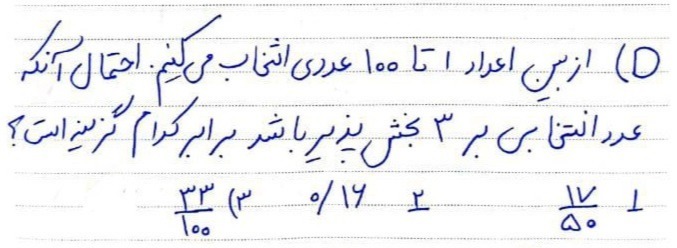 D) از بین اعداد ۱ تا ۱۰۰ عددی انتخاب می‌کنیم. احتمال آنکه
عدد انتخابی بر ۳ بخش پذیر باشد برابر کدام گزینه است؟
۱ ۱۷/۵۰ ۲ ۰/۱۶ ۳) ۳۳/۱۰۰